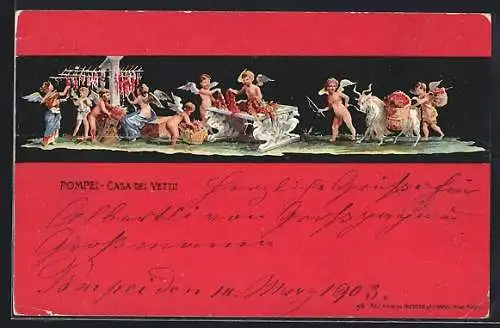 POMPEI - CASA DEI VETTII
Herzliche Grüße für
Albertli von Großpapa u
Großmama
Pompei den 10. März 1903.